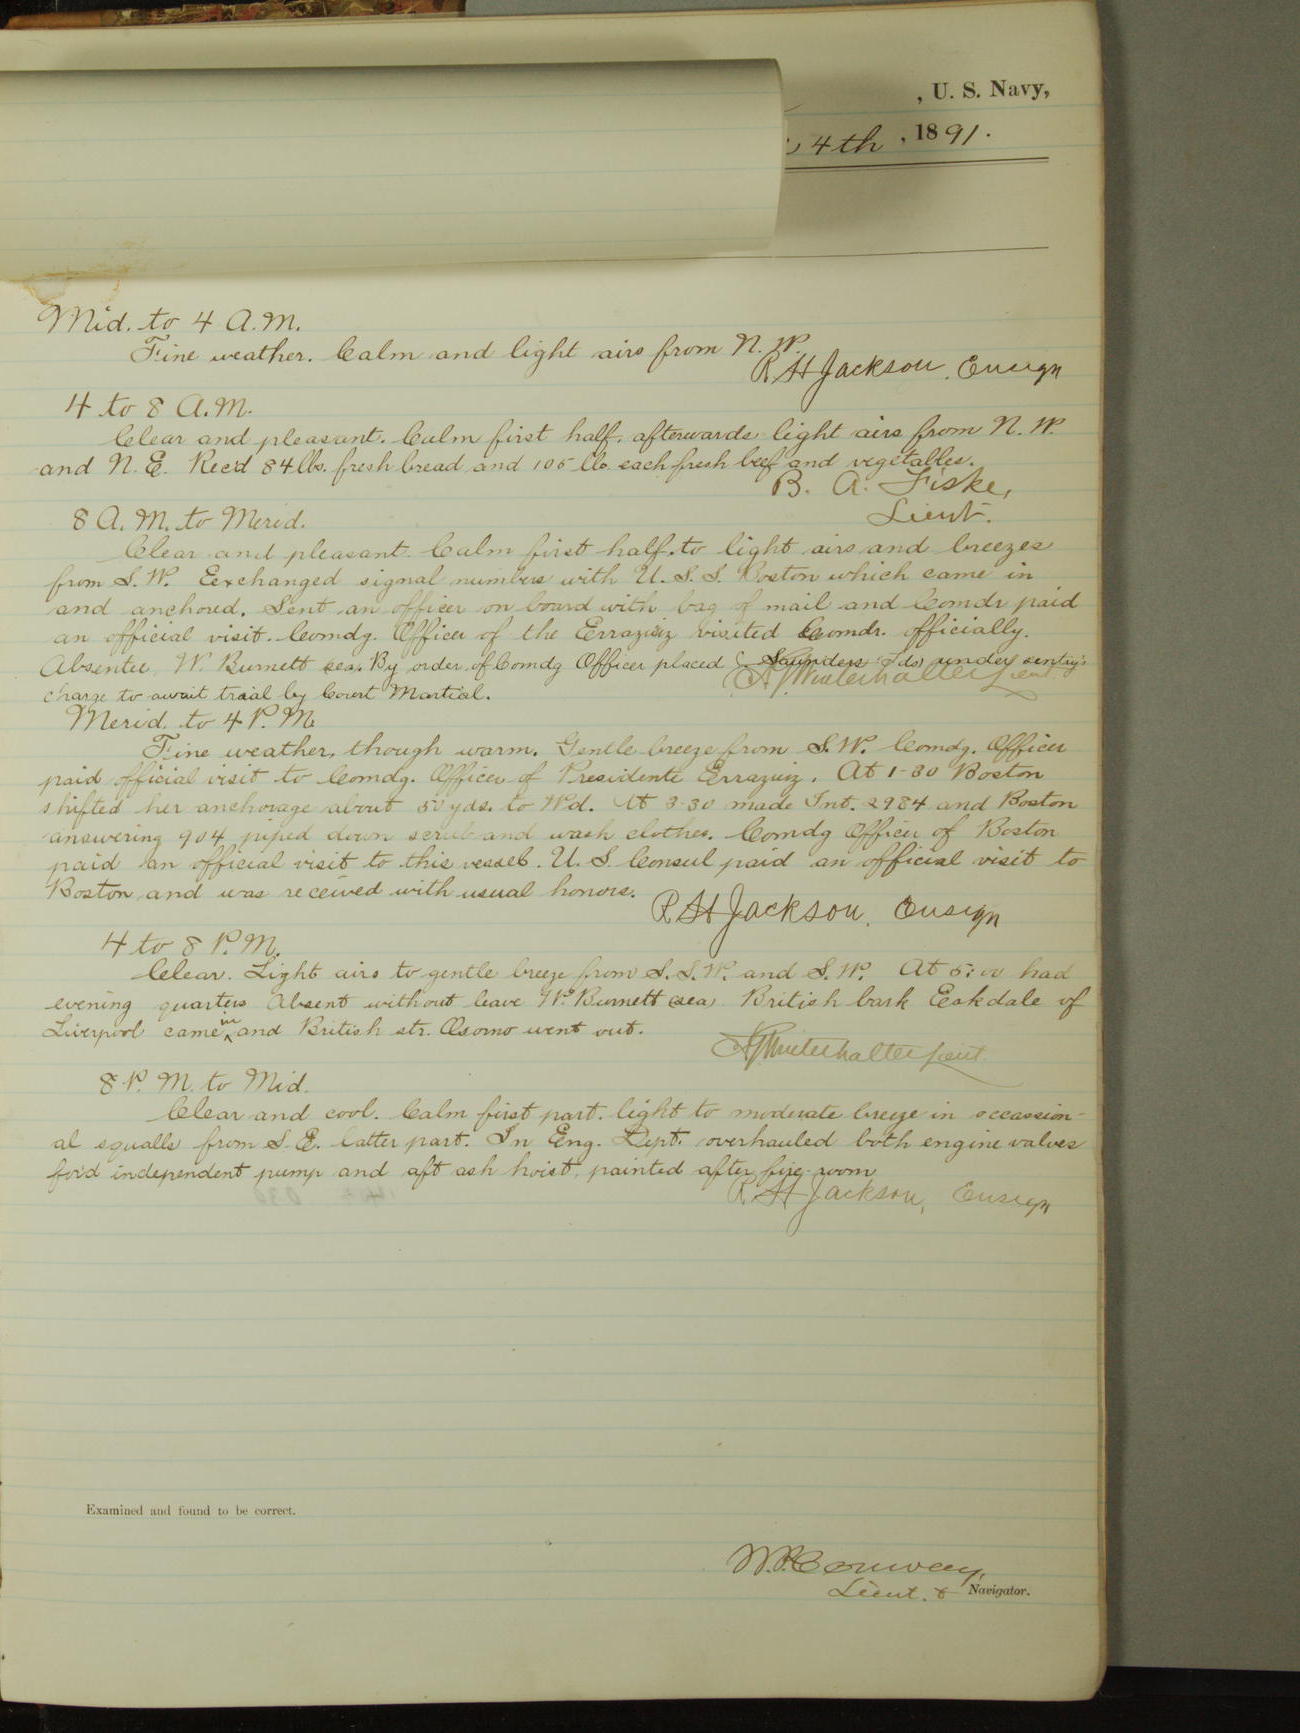 , U. S. Navy,
4th, 1891.
Mid. to 4 A.M.
Fine weather. Calm and light airs from N. W.
R H Jackson, Ensign
4 to 8 A.M.
Clear and pleasant. Calm first half, afterwards light airs from N. W.
and N. E. Rec'd 84 lbs. fresh bread and 105 lb. each fresh beef and vegetables.
B. A. Fiske,
Lieut.
8 A. M. to Merid.
Clear and pleasant. Calm first half, to light airs and breezes
from S. W. Eexchanged signal numbers with U. S. S. Boston which came in
and anchored. Sent an officer on board with bag of mail and Comdr paid
an official visit. Comdg. Officer of the Errazuiz visited Comdr. officially.
Absentee, W. Burnett sea. By order of Comdg Officer placed Saunders (Lds) under sentry's
charge to await traial by Court Martial.
Winterhalter Lieut.
Merid. to 4 P. M.
Fine weather, though warm. Gentle breeze from S. W. Comdg. Officer
paid official visit to Comdg. Officer of Presidente Errazuiz. At 1-30 Boston
shifted her anchorage about 50 yds. to Wd. At 3-30 made Int. 2984 and Boston
answering 904 piped down scrub and wash clothes. Comdg Officer of Boston
paid an official visit to this vessel. U. S. Consul paid an official visit to
Boston and was received with usual honors.
R H Jackson, Ensign
4 to 8 P. M.
Clear. Light airs to gentle breeze from S. S. W. and S. W. At 5:00 had
evening quarters Absent without leave W. Burnett (sea) British bark Eskdale of
Liverpool came in and British str. Osorno went out.
Winterhalter Lieut.
8 P. M. to Mid.
Clear and cool. Calm first part, light to moderate breeze in occassion-
al squalls from S. E. latter part. In Eng. Dept. overhauled both engine valves
for'd independent pump and aft ash hoist, painted after fire-room
R. H Jackson, Ensign
Examined and found to be correct.
W. P. Conway,
Lieut. & Navigator.